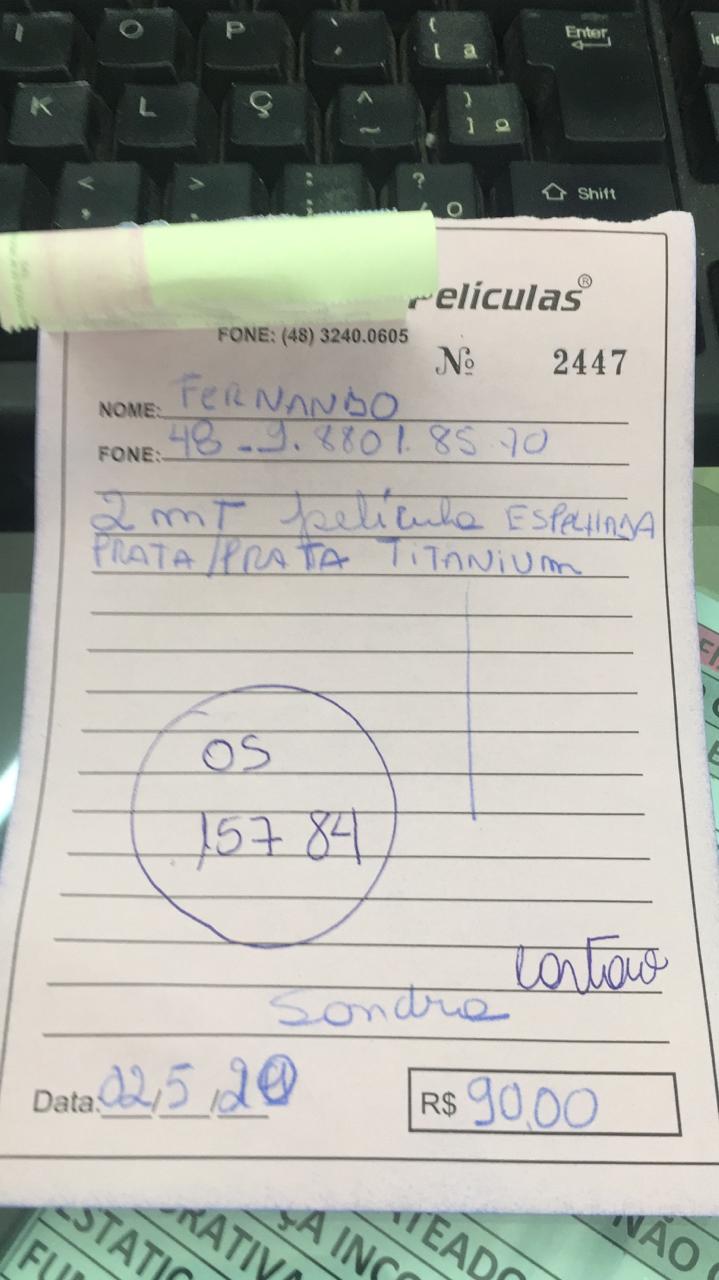 I O P ` ´ { [ ª Enter
K L Ç ^ ~ } ] º
< , > . : ; ? / Shift
Películas®
FONE: (48) 3240.0605
Nº 2447
NOME: FERNANDO
FONE: 48-9.8801.85.70
2 mT película ESPELHADA
PRATA/PRATA TITANIUM
OS
15784
cartão
Sandra
Data: 02/5/
R$ 90,00
NÃO